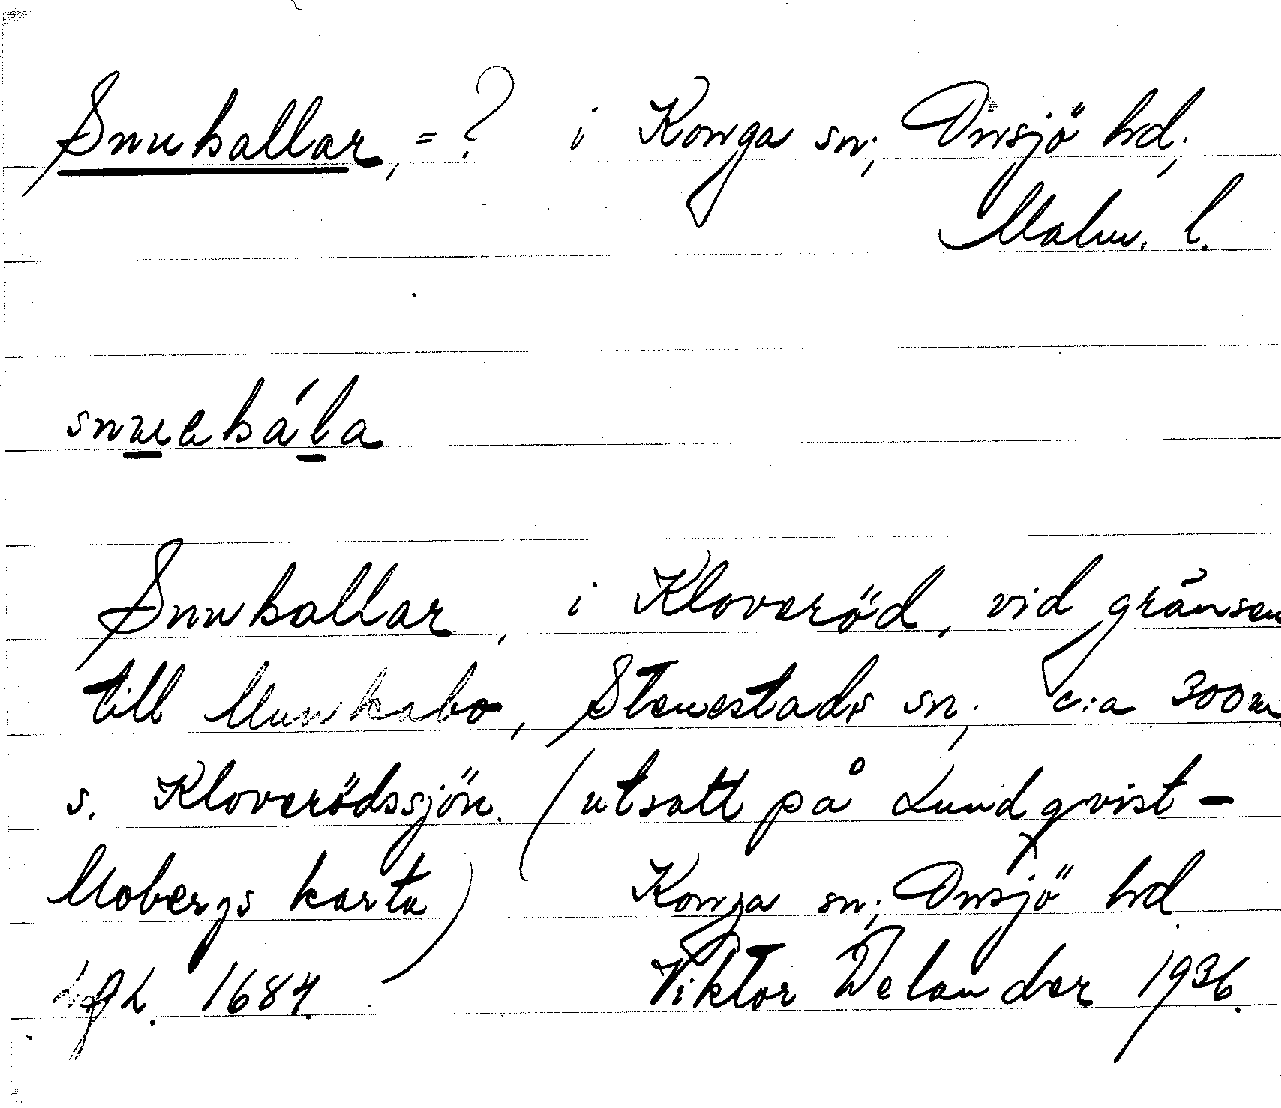 Snuhallar, = ? i Konga sn; Onsjö hd;
Malm. l.
snuehála
Snuhallar, i Kloveröd, vid gränsen
till Munkabo, Stenestads sn; c:a 300 m
s. Kloverödssjön. (utsatt på Lundqvist-
Mobergs karta) Konga sn; Onsjö hd
1684. Viktor Welander 1936.